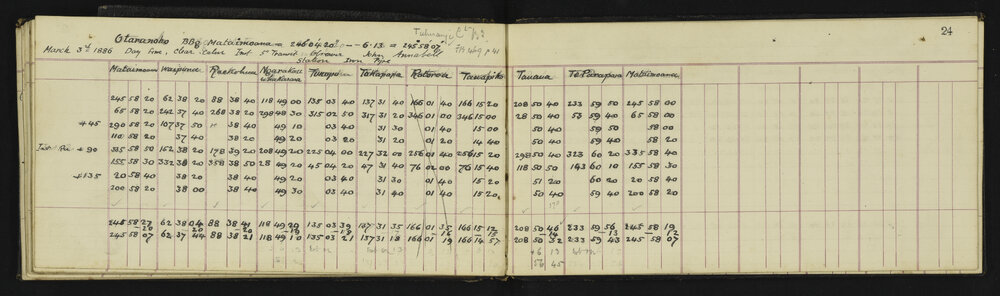 24
Otaranoho BBg Mataimoana = 246 04 20 — 6 13 = 245 58 07
March 3rd 1886 Day Fine, Clear, Calm Inst 5" Transit John Annabell
Station Iron Pipe
Mataimoana Waipunga Raekohua Ngarakau Whakarara Tuapo Takapaua Ratoroa Tawapiko Tauana Te Parapara Mataimoana
245 58 20 62 38 20 88 38 40 118 49 00 135 03 40 137 31 40 166 01 40 166 15 20 208 50 40 233 59 50 245 58 00
65 58 20 242 37 40 268 38 20 298 48 30 315 02 50 317 31 20 346 01 00 346 15 00 28 50 40 53 59 40 65 58 00
+45 290 58 20 107 37 50 38 40 49 10 03 40 31 30 01 40 15 00 50 40 59 50 58 00
110 58 20 37 40 38 20 49 20 03 20 31 20 01 20 14 40 50 40 59 40 58 20
+90 335 58 50 152 38 20 178 39 20 208 49 20 225 04 00 227 32 00 256 01 40 256 15 20 298 50 40 323 60 20 335 58 40
155 58 30 332 38 20 358 38 50 28 49 20 45 04 20 47 31 40 76 02 00 76 15 40 118 50 50 143 60 10 155 58 30
+135 20 58 40 38 20 38 40 49 20 03 40 31 30 01 40 15 20 51 20 60 20 20 58 40
200 58 20 38 00 38 40 49 30 03 40 31 40 01 40 15 20 50 40 59 40 200 58 20
245 58 27 62 38 04 88 38 41 118 49 20 135 03 39 137 31 35 166 01 35 166 15 12 208 50 46 233 59 56 245 58 19
245 58 07 62 37 44 88 38 21 118 49 10 135 03 21 137 31 18 166 01 19 166 14 57 208 50 32 233 59 43 245 58 07
+6 13
56 45